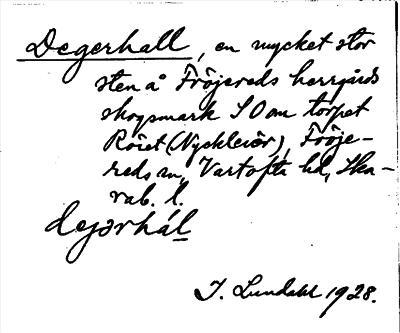 Degerhall, en mycket stor
sten å Fröjereds herrgårds
skogsmark SO om torpet
Röret (Nyckleiör), Fröje-
reds sn, Vartofta hd, Ska-
rab. l.
dejərhál
I. Lundahl 1928.